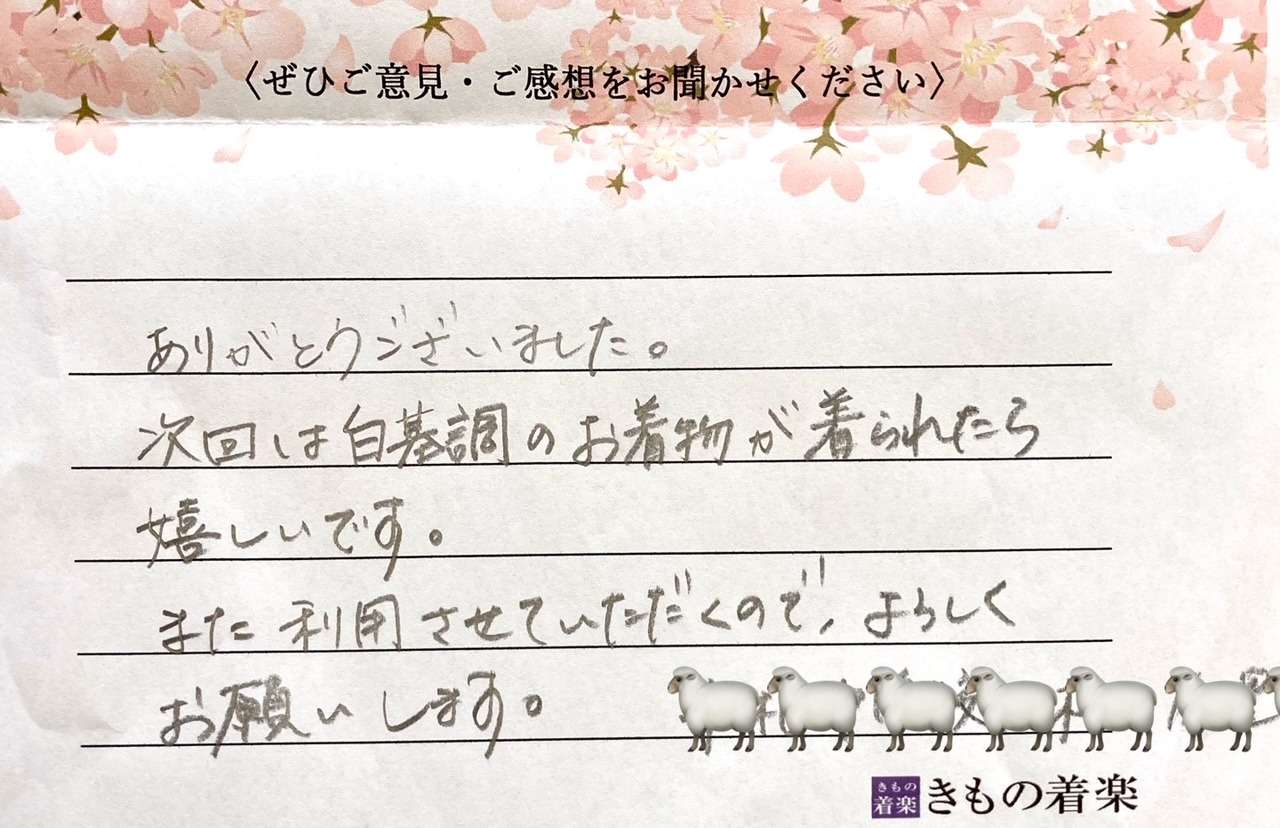 〈ぜひご意見・ご感想をお聞かせください〉
ありがとうございました。
次回は白基調のお着物が着られたら
嬉しいです。
また利用させていただくので、よろしく
お願いします。
きもの
着楽
きもの着楽